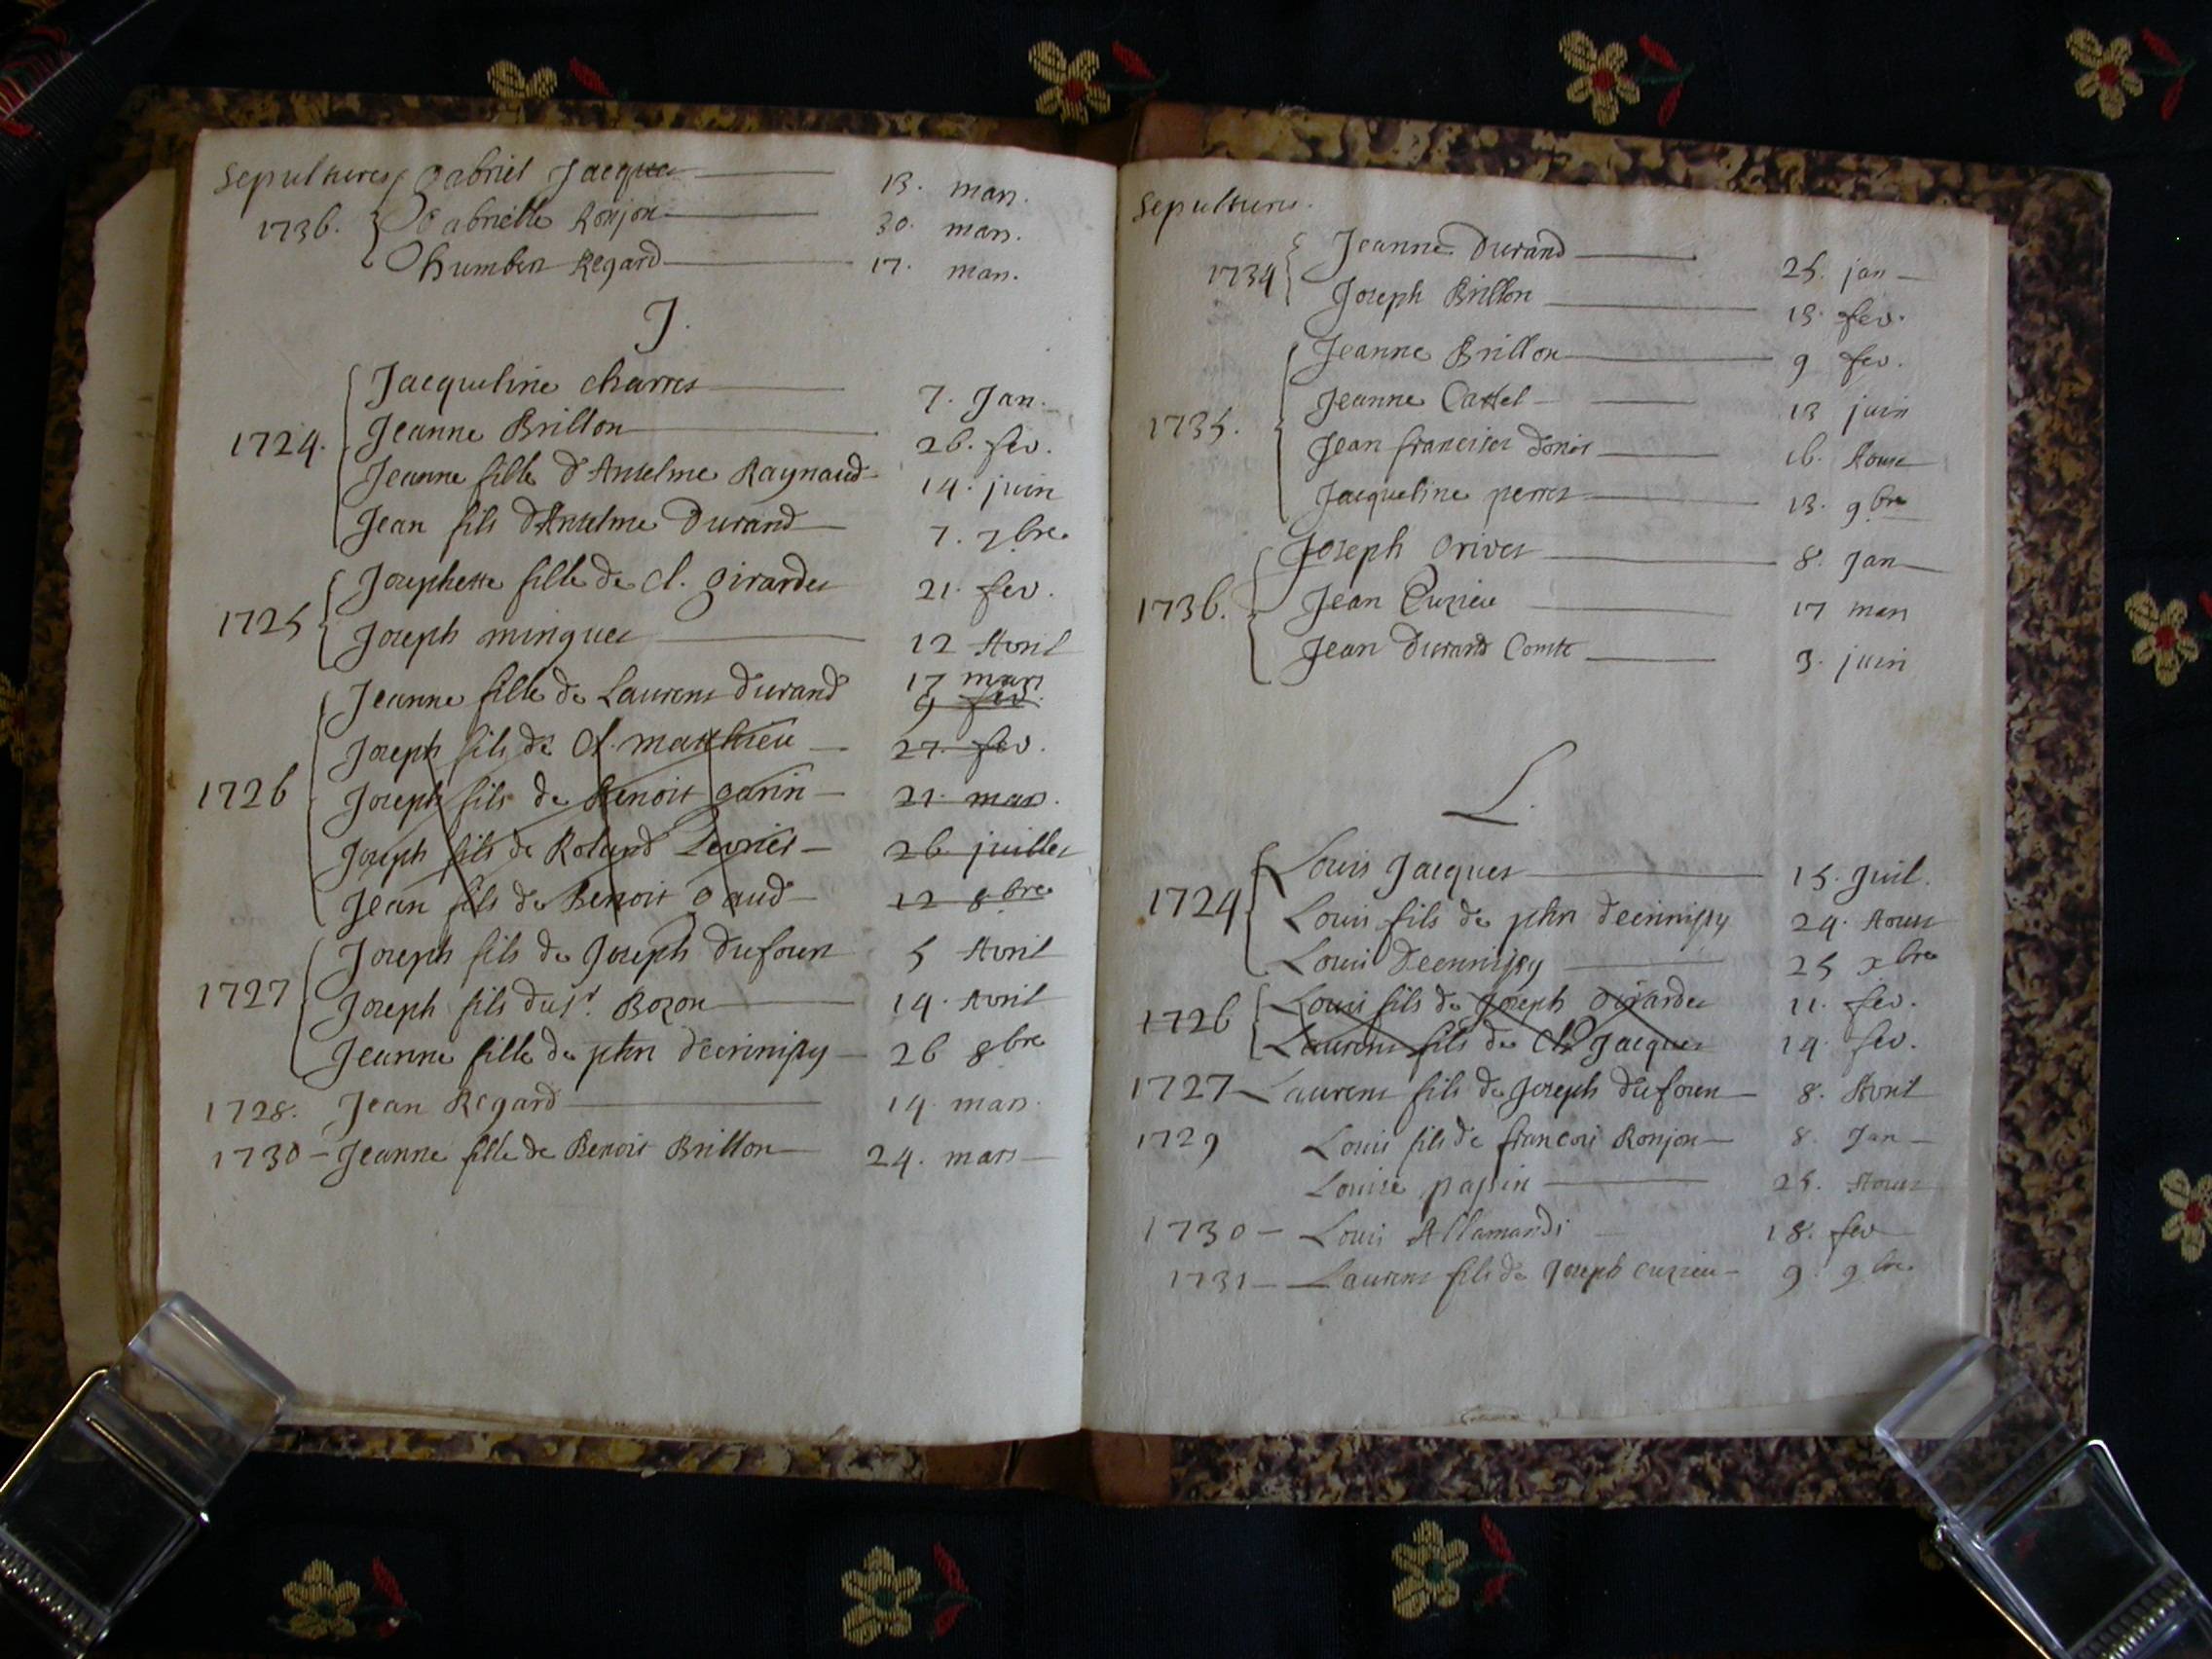 Sepultures Gabriel Jacques 13. mars.
1736. Gabrielle Ronjon 30. mars.
humbert Regard 17. mars.
J.
Jacqueline charres 7. Jan.
1724. Jeanne Brillon 26. fev.
Jeanne fille d'Antelme Raynaud 14. juin
Jean fils d'Antelme Durand 7. 7bre
Josephette fille de Cl. Girardet 21. fev.
1725 Joseph minguet 12 Avril
Jeanne fille de Laurent durand 17 mars
9 fev.
Joseph fils de Cl. matthieu 27. fev.
1726 Joseph fils de Benoit garin 21. mars.
Joseph fils de Roland 26 juillet
Jean fils de Benoit gaud 12 8bre
Joseph fils de Joseph dufour 5 Avril
1727 Joseph fils du Sr. Bozon 14. Avril
Jeanne fille de phn 26 8bre
1728. Jean Regard 14. mars.
1730 - Jeanne fille de Benoit Brillon 24. mars
Sepultures.
1734 Jeanne Durand 25. jan
Joseph Brillon 13. fev.
Jeanne Brillon 9 fev.
Jeanne Cattel 13 juin
1735. Jean franciset 16. Aoust
Jacqueline perret 13. 9bre
Joseph Orivet 8. Jan
1736. Jean Cuzieu 17 mars
Jean Durand Comte 3. juin
L.
Louis Jacquet 15. Juil.
1724 Louis fils de phn 24. Aoust
Louis 25 xbre
1726 Louis fils de Joseph Girardet 11. fev.
Laurent fils de Cl. Jacquet 14. fev.
1727 Laurent fils de Joseph dufour 8. Avril
1729 Louis fils de francois Ronjon 8. Jan
Louise papin 25. Aoust
1730 - Louis Allamandi 18. fev
1731 - Laurent fils de Joseph cuzieu 9. 9bre